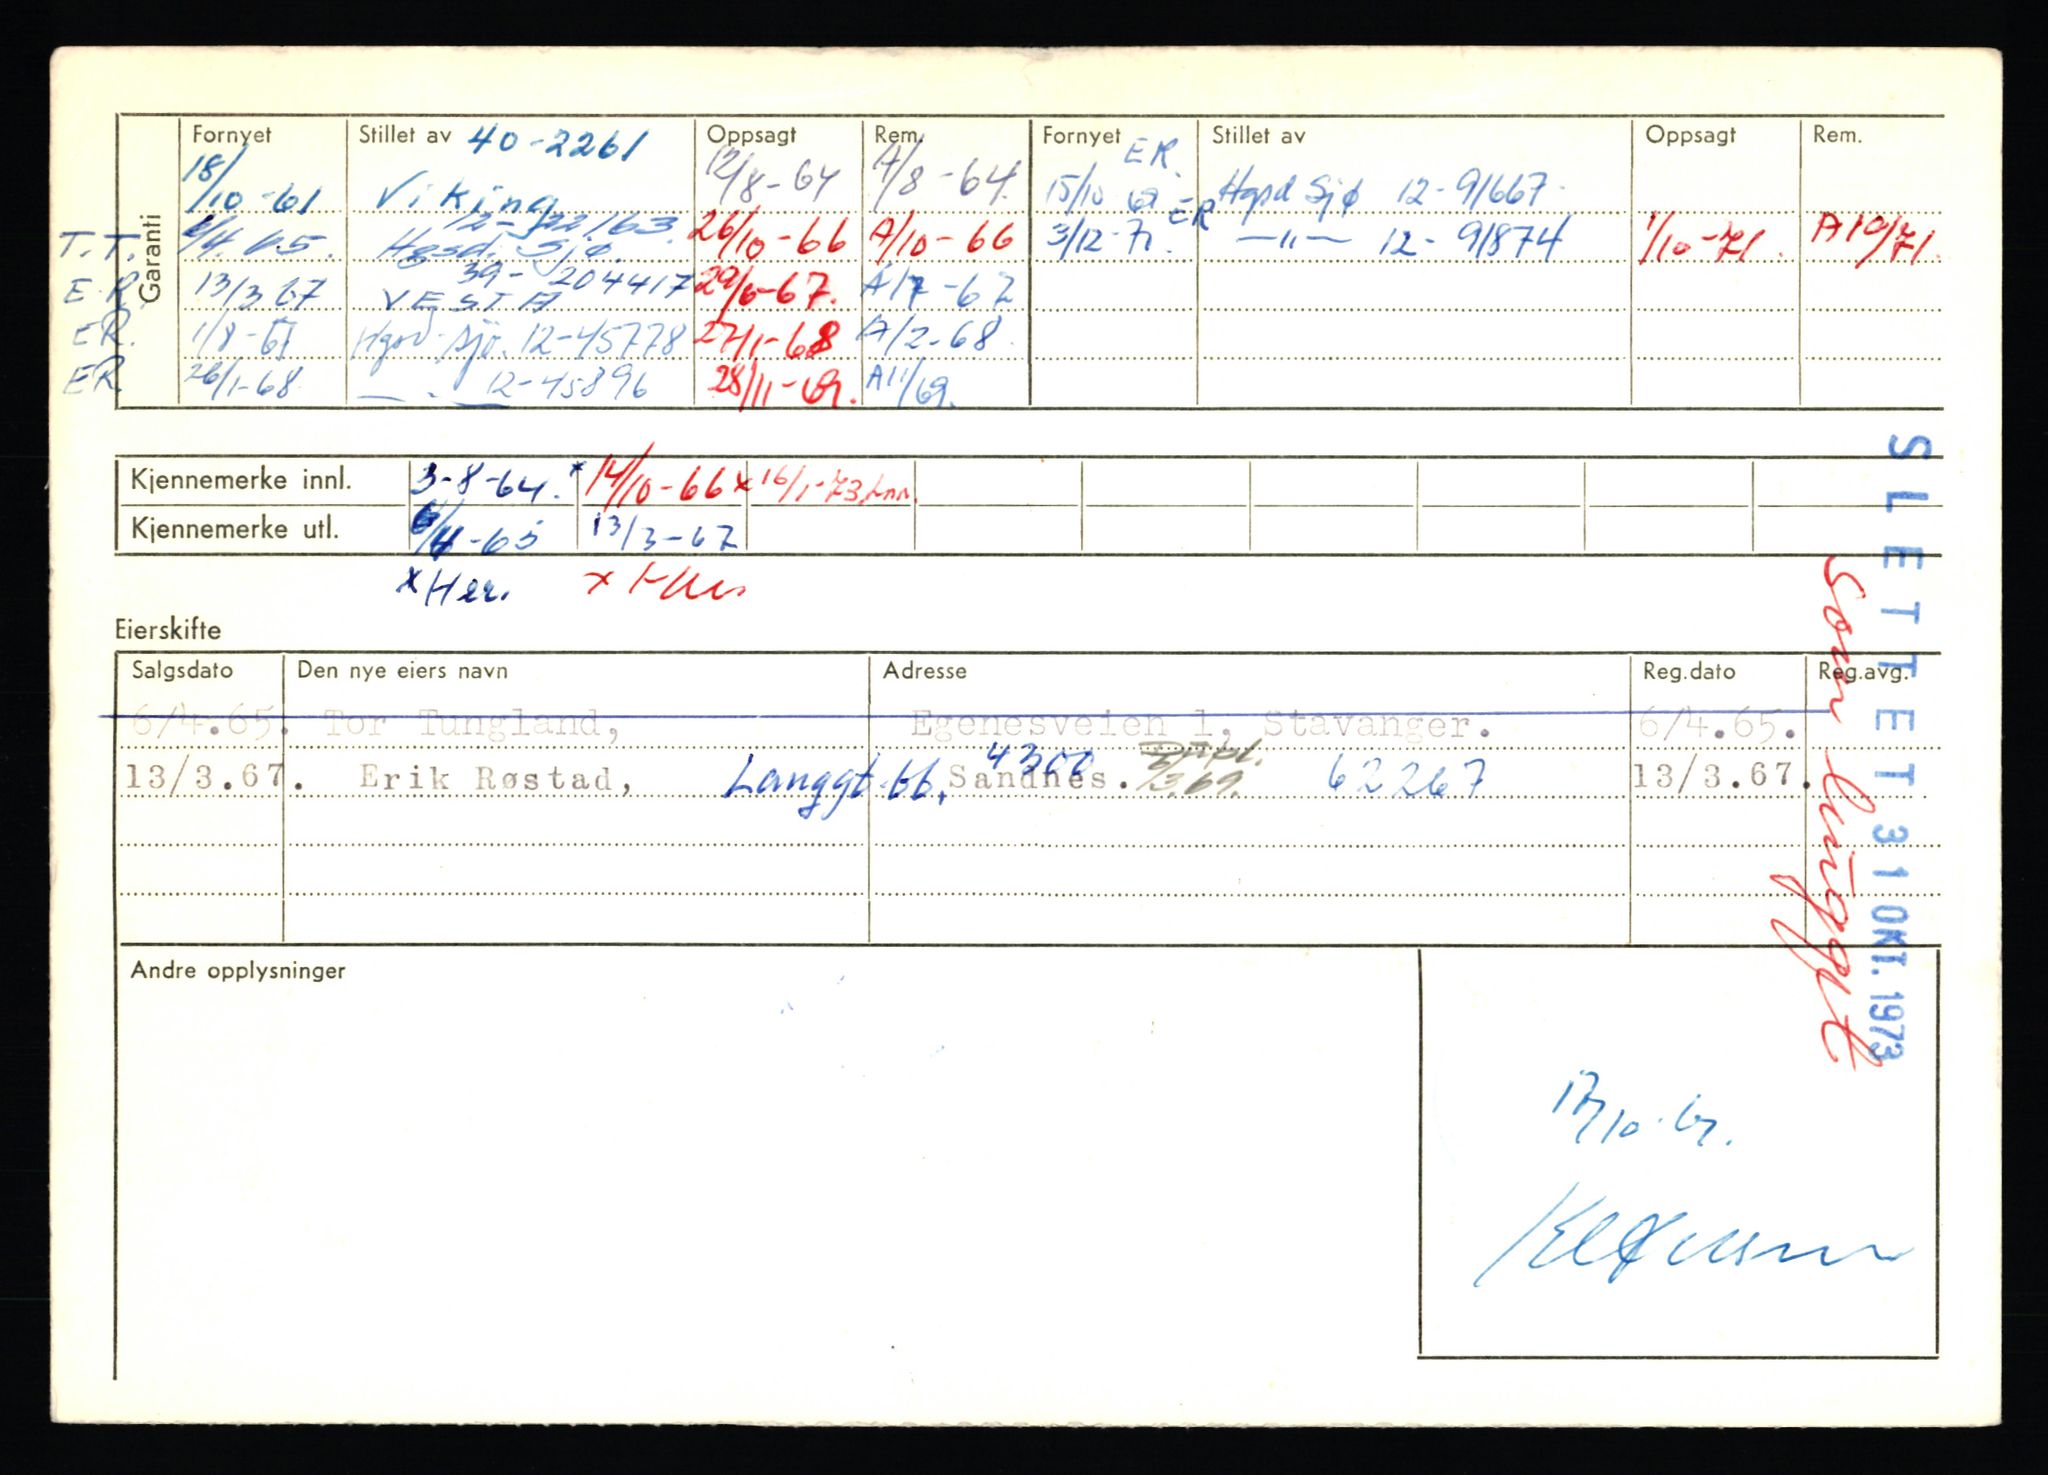 Garanti
Fornyet Stillet av 40-2261 Oppsagt Rem. Fornyet Stillet av Oppsagt Rem.
18/10-61 Viking 12/8-64 A/8-64. 15/10 69 ER. Hgsd Sjø 12-91667-
T.T. 6/4.65. Hgsd. Sjø. 12-22163. 26/10-66 A/10-66 3/12-71 ER —"— 12-91874 1/10-71. A10/71.
E.R. 13/3 67 VESTA 39-204417 29/6-67. A/7-67
ER. 1/8-67 Hgsd-Sjø. 12-45778 27/1-68 A/2-68.
ER. 26/1-68 — . — 12-45896 28/11-69. A11/69.
Kjennemerke innl. 3-8-64.* 14/10-66x 16/1-73 Inn.
Kjennemerke utl. 6/4-65 13/3-67
x Her. x Her
Eierskifte
Salgsdato Den nye eiers navn Adresse Reg.dato Reg.avg.
6/4.65. Tor Tungland, Egenesveien 1, Stavanger. 6/4.65.
13/3.67. Erik Røstad, Langgt. 66, 4300 Sandnes. Dupl. 3/3.69. 62267 13/3.67.
Andre opplysninger
SLETTET 31 OKT. 1973
Som linügget